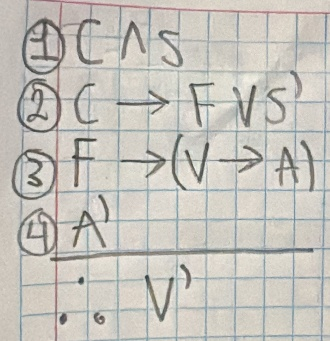 ① C ∧ S
② C → F ∨ S'
③ F → (V → A)
④ A'
∴ V'